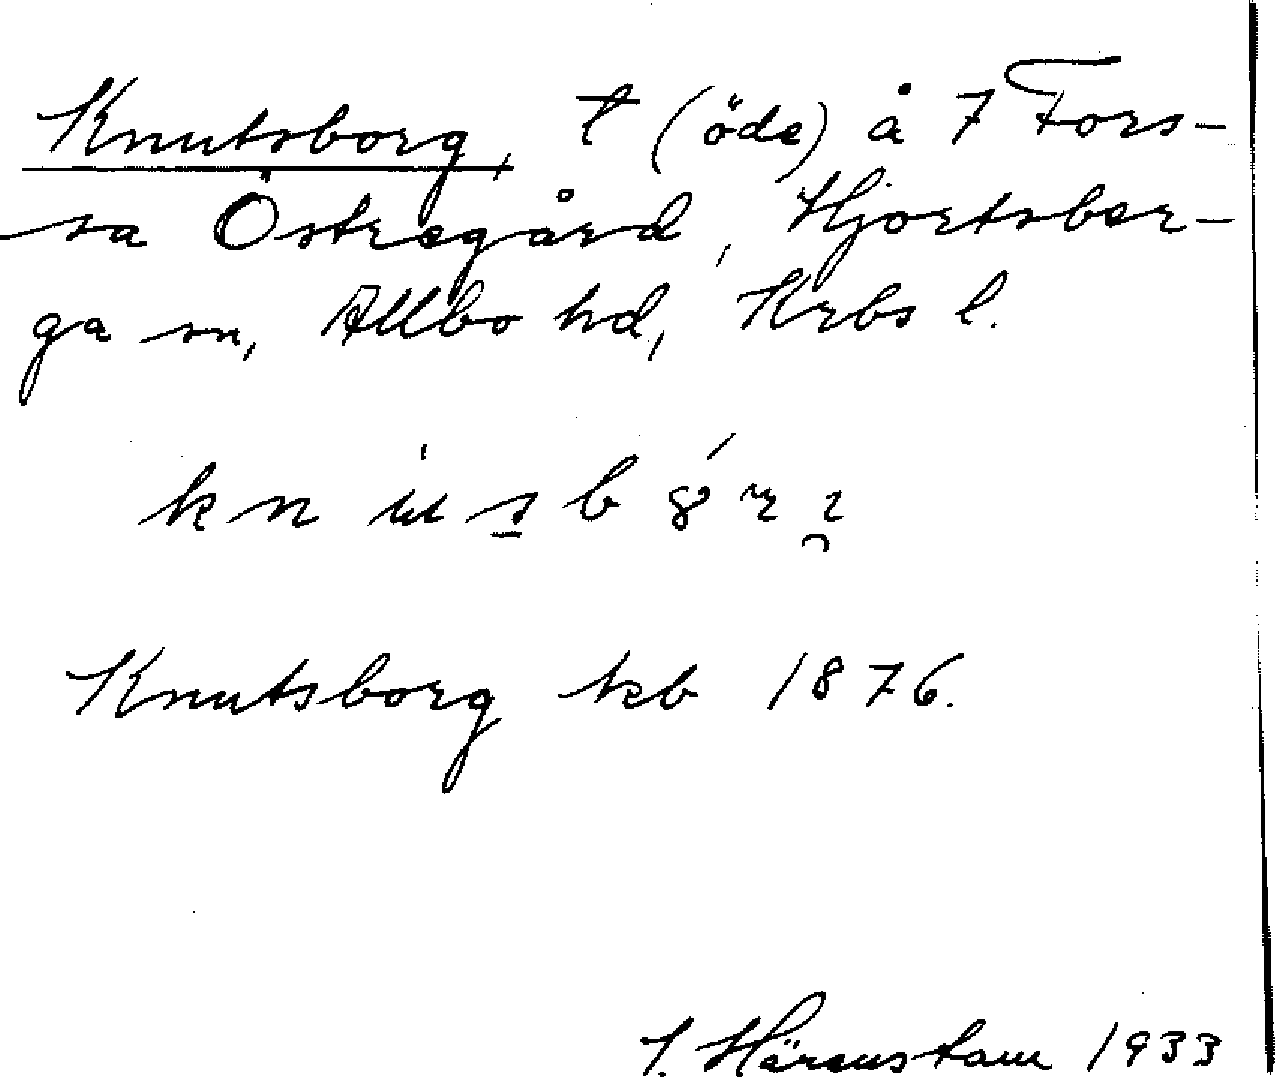 Knutsborg, t (öde) å 7 Fors-
sa Östregård, Hjortsber-
ga sn, Allbo hd, Krbs l.
Knutsborg kb 1876.
Härenstam 1933